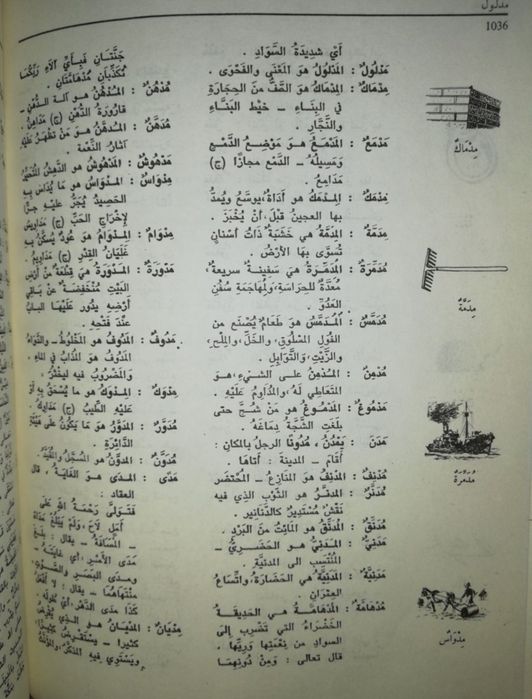 مدلول
1036
أَيْ شديدةُ السَّوَادِ .
مَدْلُولٌ : المَدْلُولُ هو المَعْنَى والفَحْوَى .
مِدْمَاكٌ : المِدْمَاكُ هو الصَّفُّ مِنَ الحِجَارَةِ
في البِنَاءِ ــ خَيْطُ البَنَّاءِ
والنَّجَّارِ .
مَدْمَعٌ : المَدْمَعُ هو مَوْضِعُ الدَّمْعِ
وَمَسِيلُهُ ــ الدَّمْع مجازًا (ج)
مَدَامِعُ .
مِدْمَكٌ : المِدْمَكُ هو أداةٌ يُوَسَّعُ ويُمَدُّ
بها العجينُ قَبْلَ أنْ يُخْبَزَ .
مِدَمَّةٌ : المِدَمَّةُ هي خَشَبَةٌ ذَاتُ أسْنَانٍ
تُسَوَّى بها الأرْضُ .
مُدَمِّرَةٌ : المُدَمِّرَةُ هي سَفِينَةٌ سريعةٌ
مُعَدَّةٌ للحِرَاسَةِ، ولِمُهَاجَمَةِ سُفُنِ
العَدُوِّ .
مُدَمَّسٌ : المُدَمَّسُ هو طَعَامٌ يُصْنَع من
الفُولِ المَسْلُوقِ، والخَلِّ، والمِلْحِ،
والزَّيْتِ، والتَّوَابِلِ .
مُدْمِنٌ : المُدْمِنُ على الشيءِ، هو
المُتَعَاطِي لَهُ، والمُدَاوِمُ عَلَيْهِ .
مَدْمُوغٌ : المَدْمُوغُ هو مَنْ شُجَّ حتى
بلَغَتِ الشَّجَّةُ دِمَاغَهُ .
مَدَنَ ــ يَمْدُنُ ، مُدُونًا الرجلُ بالمكانِ :
أَقَامَ ــ المدينةَ : أتَاهَا .
مُدْنِفٌ : المُدْنِفُ هو المُنَازِعُ ــ المُحْتَضَر
مُدَنَّرٌ : المُدَنَّرُ هو الثوبُ الذي فيه
نَقْشٌ مُسْتَدِيرٌ كالدَّنانير .
مُدَنَّقٌ : المُدَنَّقُ هو المائتُ مِنَ البَرْدِ .
مَدَنِيٌّ : المَدَنِيُّ هو الحَضَرِيُّ ــ
المُنْتَسِب الى المدنِيَّةِ .
مَدَنِيَّةٌ : المَدَنِيَّةُ هي الحَضَارَةُ، واتِّسَاعُ
العِمْرَانِ .
مُدْهَامَّةٌ : المُدْهَامَّةُ هي الحديقةُ
الخَضْرَاءُ التي تَضْرِب إلى
السوادِ من نِعْمَتِها وَرِيِّهَا .
قال تعالى : وَمِنْ دُونِهِمَا
جَنَّتَانِ فَبِأَيِّ آلاءِ رَبِّكُمَا
تُكَذِّبَانِ مُدْهَامَّتَانِ .
مُدْهُنٌ : المُدْهُنُ هو آلةُ الدُّهْنِ ــ
قارُورَةُ الدُّهْنِ (ج) مَدَاهِنُ .
مُدَهَّنٌ : المُدَهَّنُ هو مَنْ تَظْهَرُ عَلَيْهِ
آثارُ النِّعْمَةِ .
مَدْهُوشٌ : المَدْهُوشُ هو الدَّهِشُ المُتَحَيِّرُ
مِدْوَاسٌ : المِدْوَاسُ هو مَا يُدَاسُ بِهِ
الحَصِيدُ يُجَرُّ عليهِ جرًّا
لإخْرَاجِ الحَبِّ (ج) مَدَاوِيسُ
مِدْوَامٌ : المِدْوَامُ هو عُودٌ يُسَكَّنُ بِهِ
غَلَيَانُ القِدْرِ (ج) مَدَاوِيمُ .
مَدْوَرَةٌ : المَدْوَرَةُ هي قِطْعَةٌ مِنْ أرْضِ
البَيْتِ مُنْخَفِضَةٌ عَنْ بَاقِي
أرْضِهِ يَدُورُ عَلَيْهَا البابُ
عِنْدَ فَتْحِهِ .
مَدُوفٌ : المَدُوفُ هو المَخْلُوطُ ــ والدَّوَاءُ
المَدُوفُ هو المُذَابُ في الماءِ .
والمَضْرُوبُ فيه ليَخْثُرَ .
مِدْوَكٌ : المِدْوَكُ هو ما يُسْحَقُ بِهِ أوْ
عَلَيْهِ الطِّيبُ (ج) مَدَاوِكُ .
مُدَوَّرٌ : المُدَوَّرُ هو مَا يَكُونُ على هَيْئَةِ
الدَّائِرَةِ .
مُدَوَّنٌ : المُدَوَّنُ هو المُسَجَّلُ والمُقَيَّدُ .
مَدًى : المَدَى هو الغَايَةُ ، قال
العقاد :
فَتَوَلَّى رَحْمَةُ اللهِ عَلَى
أَمَلٍ لاحَ، وَلَمْ يَبْلُغْ مَدَاهُ
ــ المَسَافَةُ ــ يقال : بَلَغَ
مَدَى الأمْرِ، أيْ غَايَتَهُ ــ
ومدى البَصَرِ والصَّوْتِ
مُنْتَهَاهُمَا ــ يقال : لا أفْعَلُ
كَذَا مدى الدَّهْرِ، أيْ طُولَهُ .
مِدْيَانٌ : المِدْيَانُ هو الذي يُقْرِضُ
كثيرًا ــ يستقرضُ كثيرًا
ويَسْتَوِي فيهِ المُذكَّرُ، والمُؤَنَّثُ
مِدْمَاكٌ
مِدَمَّةٌ
مُدَمِّرَةٌ
مِدْوَاسٌ